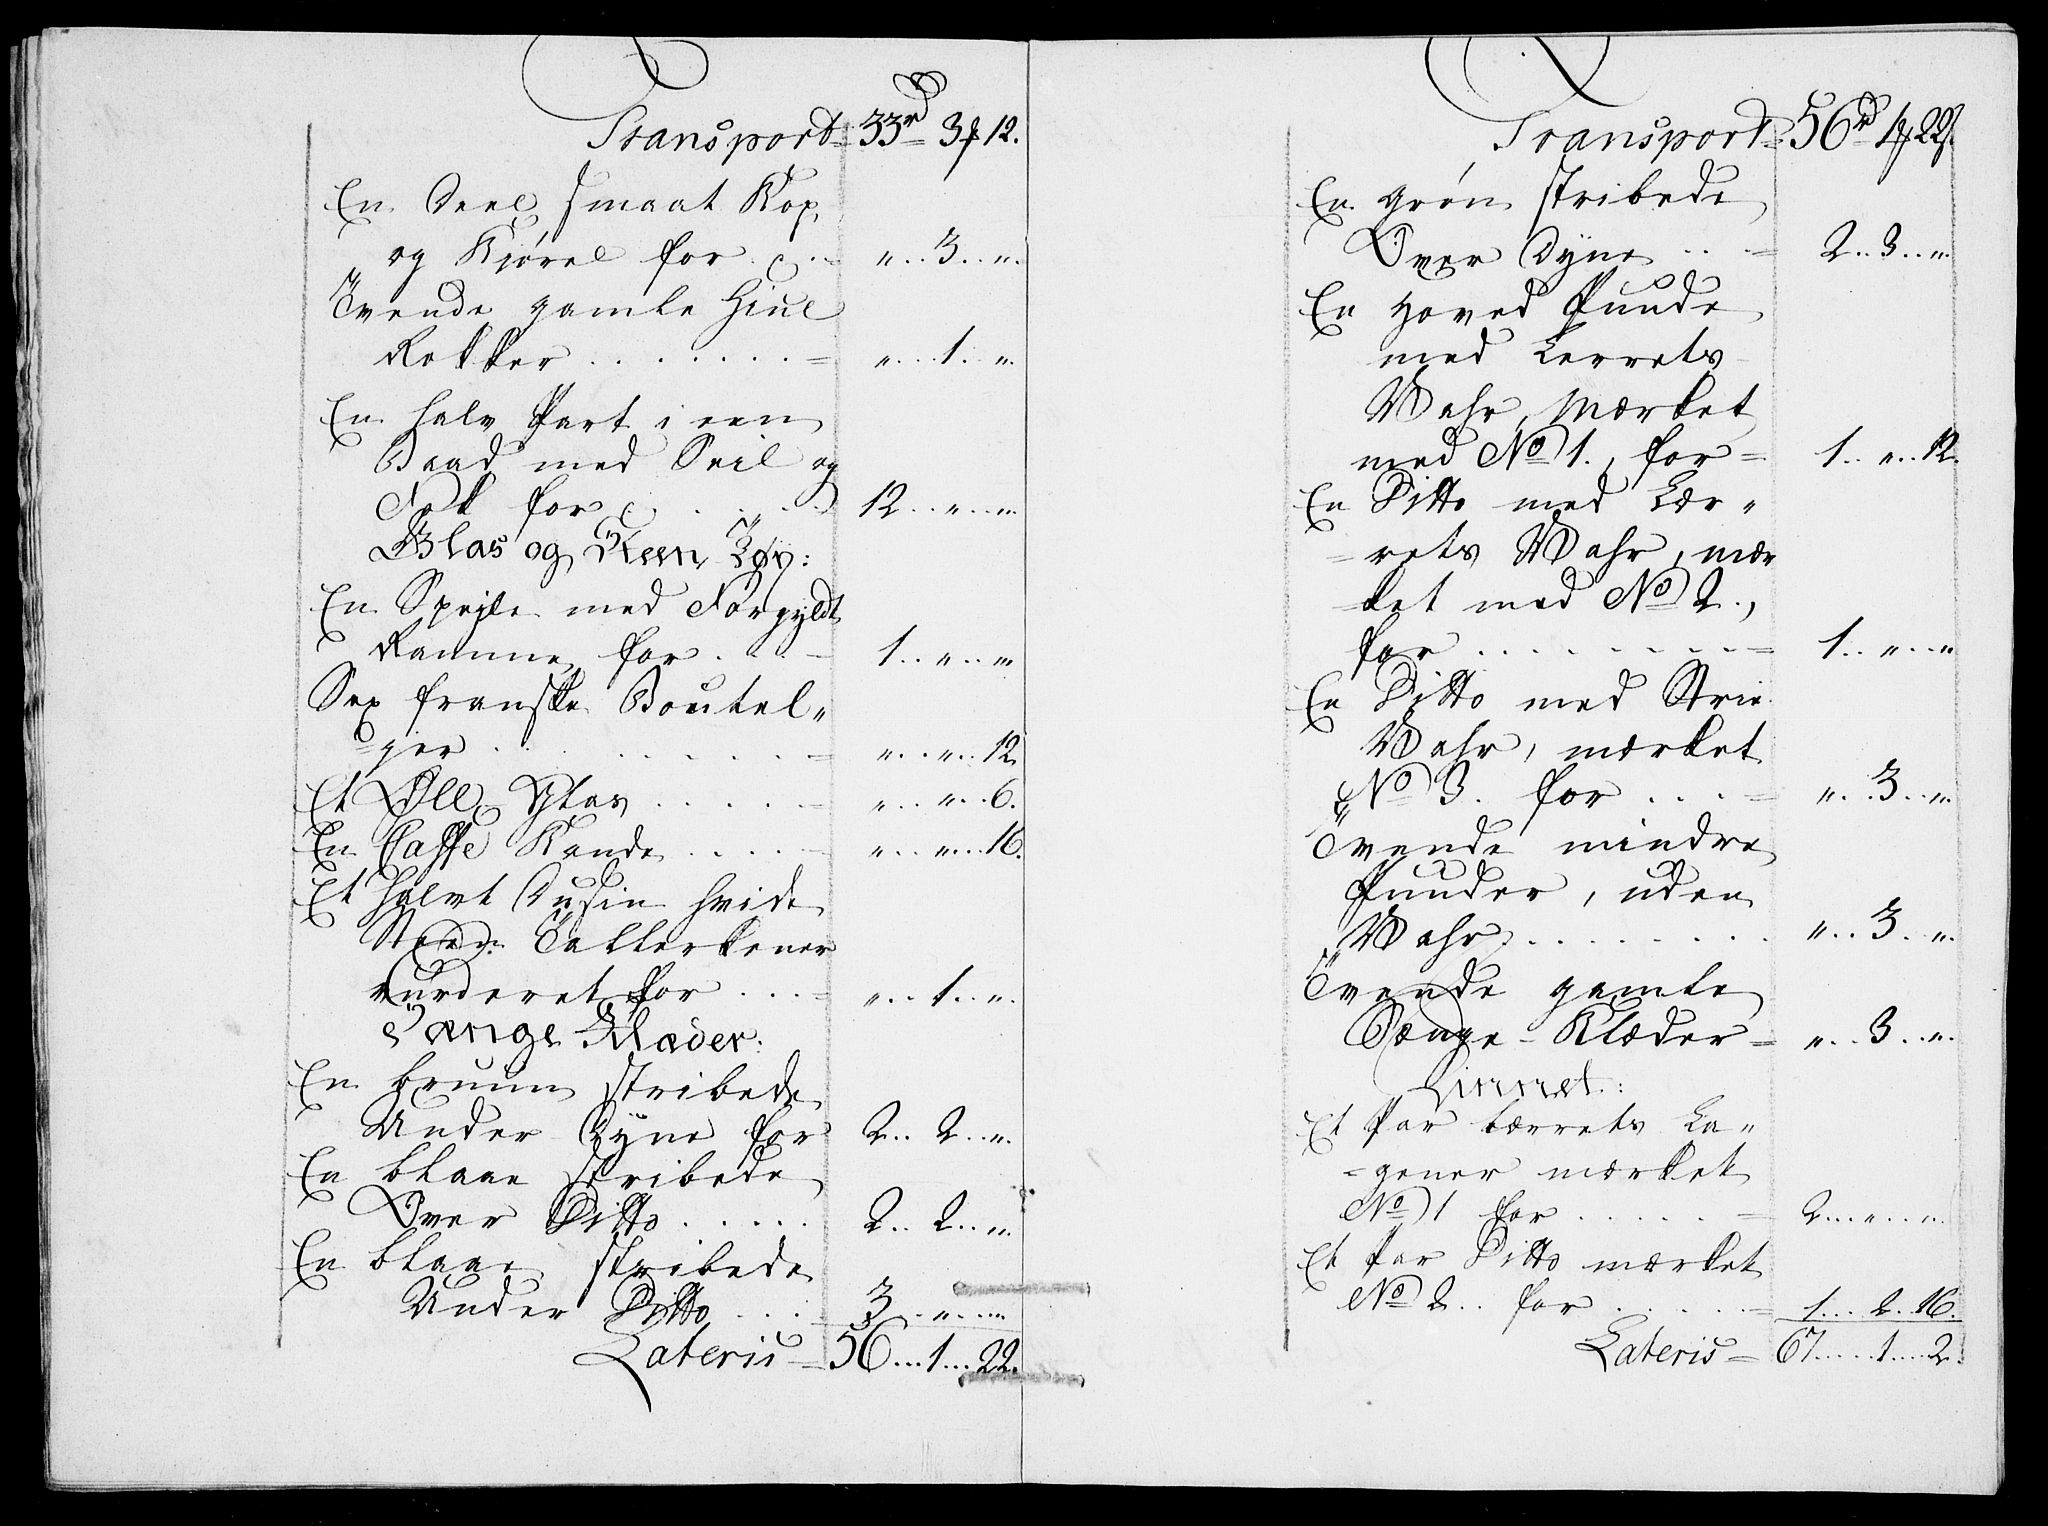 Transport = 33rd 3 12.
En Deel smaat Kop
og Kjørel for . . = „ . . 3 . . „.
Tvende gamle Hiul
Rokker . . . . . . . = „ . . 1 . . „.
En halv Part i een
Baad med Seil og
Fok for . . . . . 12 . . „ . . „.
Glas og Steen Tøy:
En Spejle med Forgyldt
Ramme for . . . = 1 . . „ . . „
Sex franske Boutel„
=jer . . . . . . . = „ . . „ . . 12
Et Øll Glas . . . . . = „ . . „ . . 6.
En Caffe Kande . . . . = „ . . „ . . 16.
Et halvt Dusin hvide
Steen Tallerkener
vurderet for . . . = „ . . 1 . . „.
Sænge Klæder:
En bruun stribede
Under Dyne for 2 . . 2 . . „.
En blaae stribede
Over Ditto . . . . . 2 . . 2 . . „.
En blaae stribede
Under Ditto . . . = 3 . . „ . . „
Lateris = 56 . . . 1 . . . 22.
Transport = 56rd 1 22s.
En grøn stribede
Over Dyne . . . = 2 . . 3 . . „.
En Hoved Puude
med Lerrets
Wahr, Mærket
med No 1., for = 1 . . „ . . 12.
En Ditto med Lær„
=rets Wahr, mær
=ket med No 2.,
for . . . . . . . . = 1 . . „ . . „
En Ditto med Strie
Wahr, mærket
No 3. for . . . = „ . . 3 . . „.
Tvende mindre
Puuder, uden
Wahr . . . . . . . „ . . 3 . . „.
Tvende gamle
Sænge-Klæder = „ . . 3 . . „.
Linnet.:
Et Par Lærrets La„
=gener mærket
No 1 for . . . . . = 2 . . . „ . . „
Et Par Ditto mærket
No 2 . . for . . . . . = 1 . . . 2 . 16.
Lateris = 67 . . . . 1 . . . . 2.